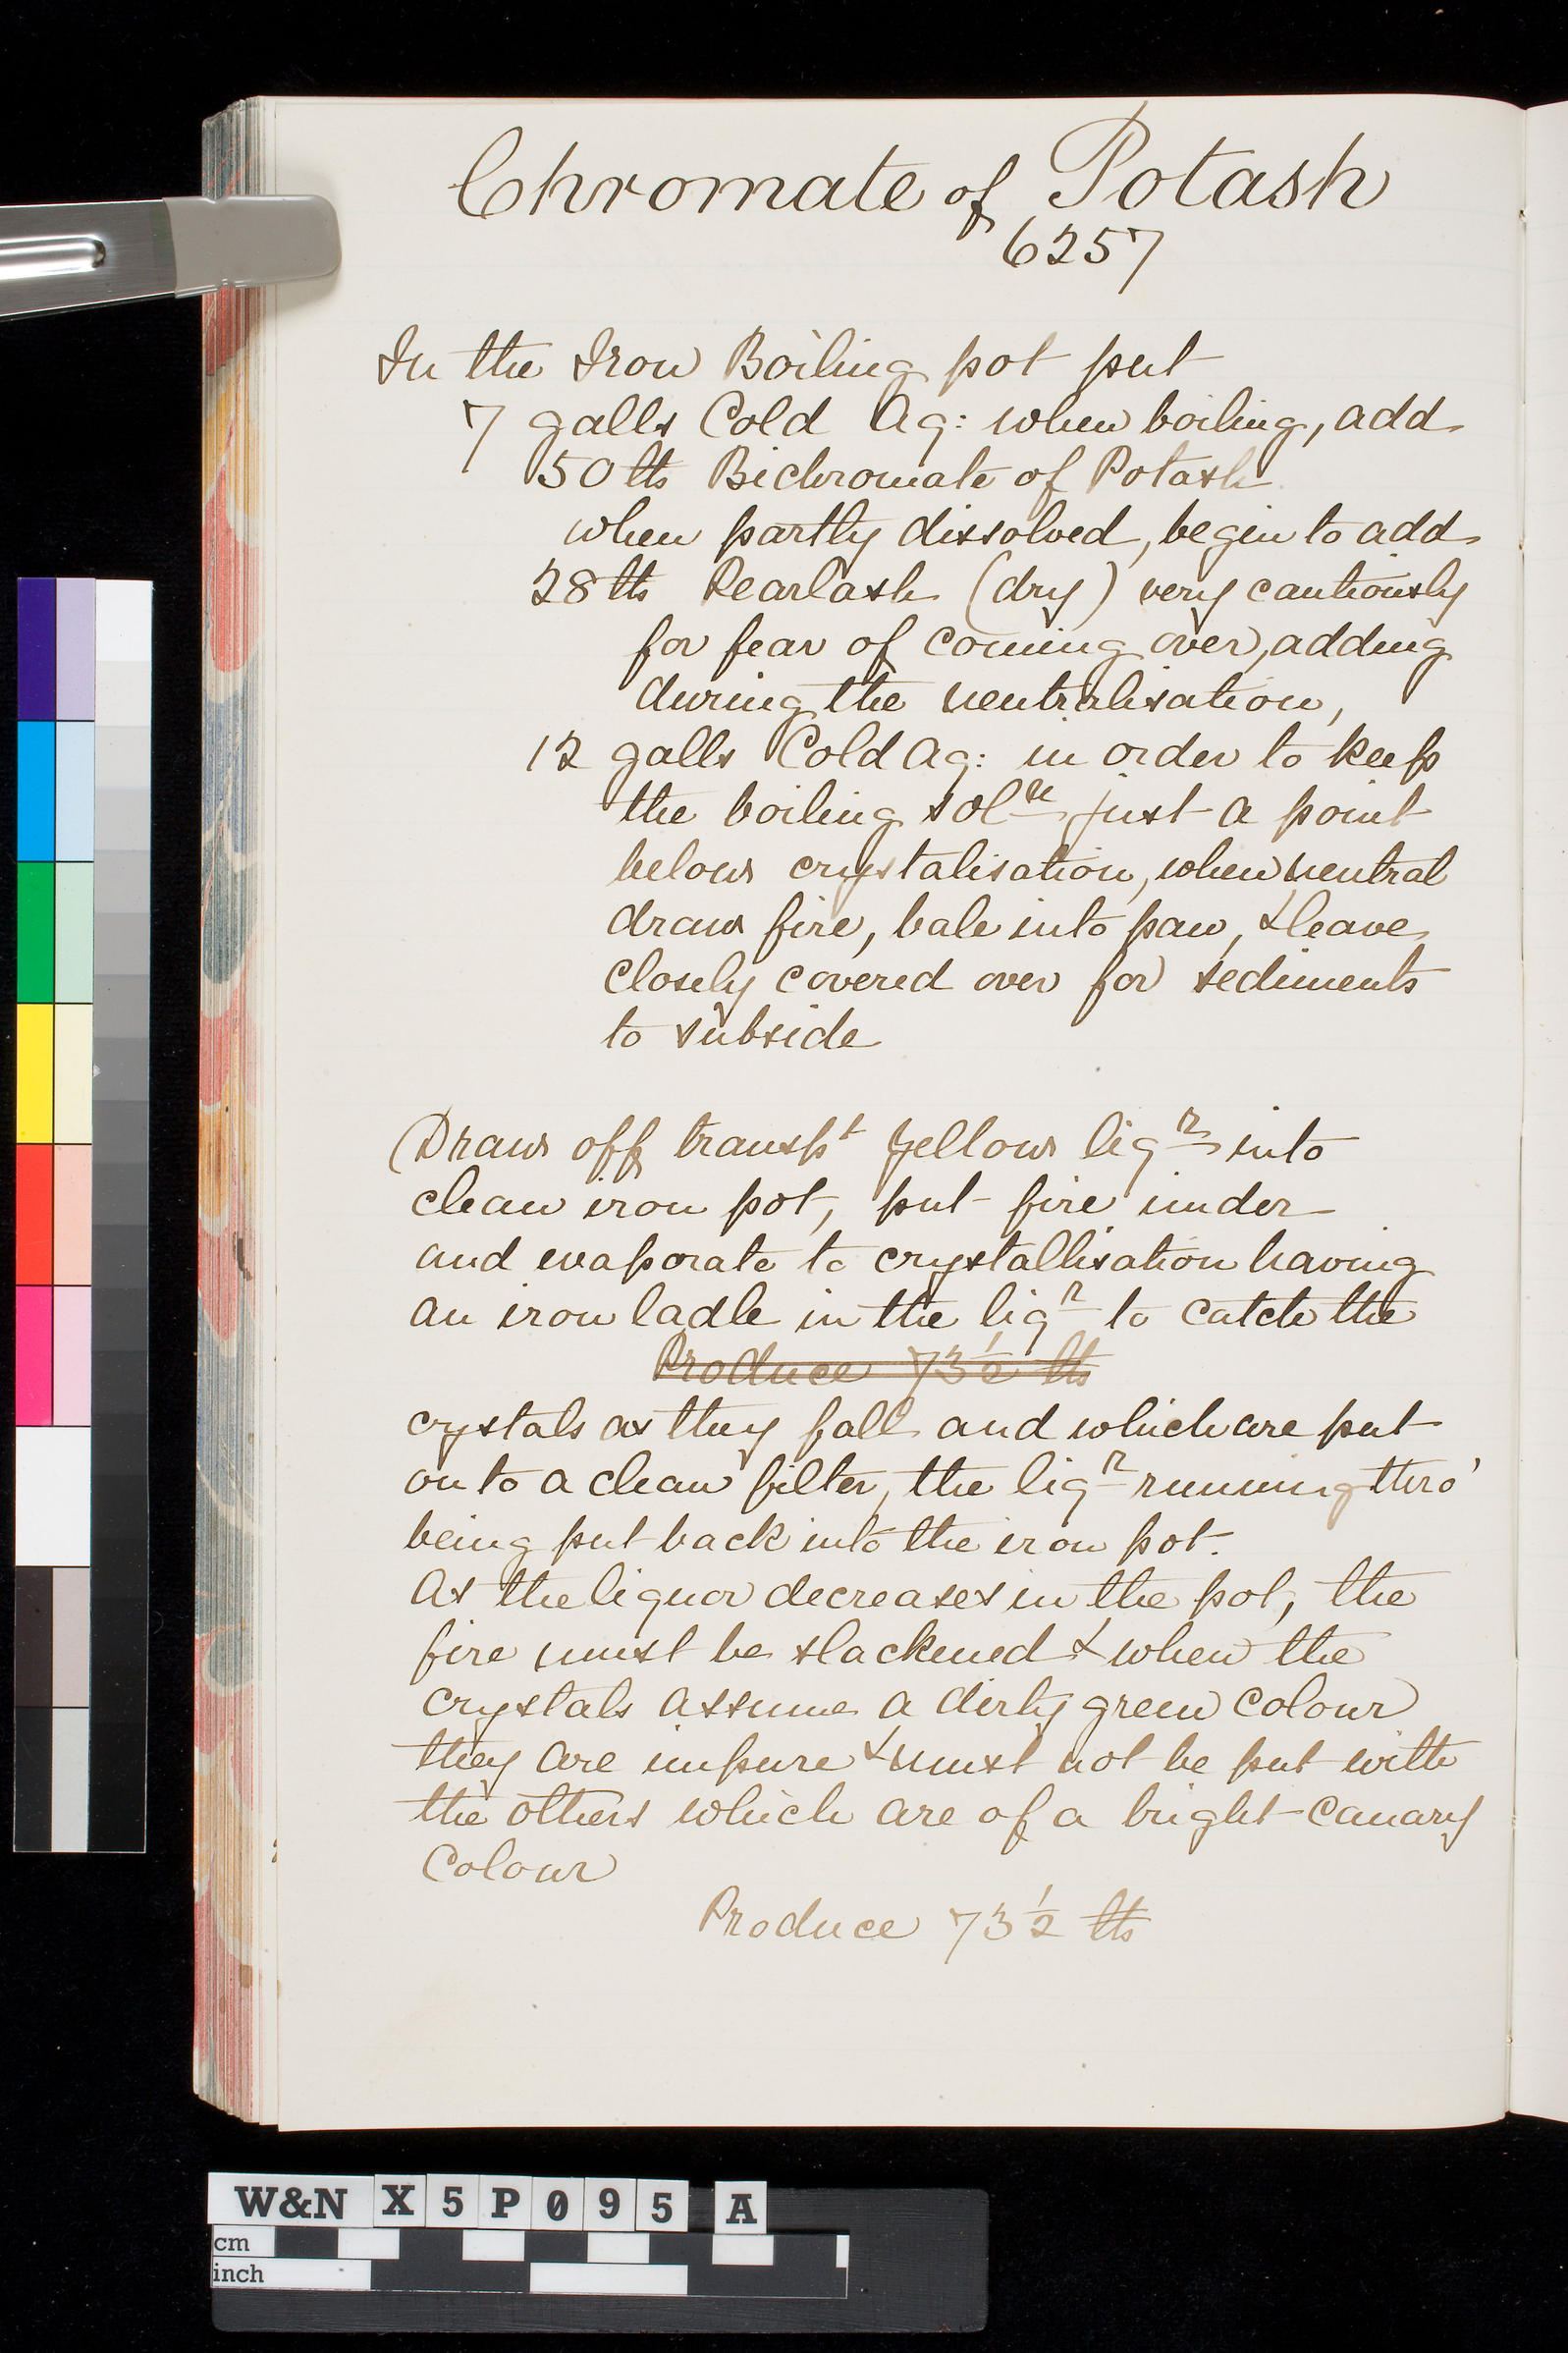 Chromate of Potash
6257
In the Iron Boiling pot put
7 galls Cold Aq: when boiling, add
50 lbs Bichromate of Potash
when partly dissolved, begin to add
28 lbs Pearlash (dry) very cautiously
for fear of coming over, adding
during the neutralisation,
12 galls Cold Aq: in order to keep
the boiling solⁿ just a point
below crystalisation, when neutral
draw fire, bale into pan, & leave
closely covered over for sediments
to subside
Draw off transpᵗ yellow liqʳ into
clean iron pot, put fire under
and evaporate to crystallisation having
an iron ladle in the liqʳ to catch the
Produce 73 1/2 lbs
crystals as they fall and which are put
on to a clean filter, the liqʳ running thro'
being put back into the iron pot.
As the liquor decreases in the pot, the
fire must be slackened & when the
crystals assume a dirty green colour
they are impure & must not be put with
the others which are of a bright canary
colour
Produce 73 1/2 lbs
W&N X5P095 A
cm
inch